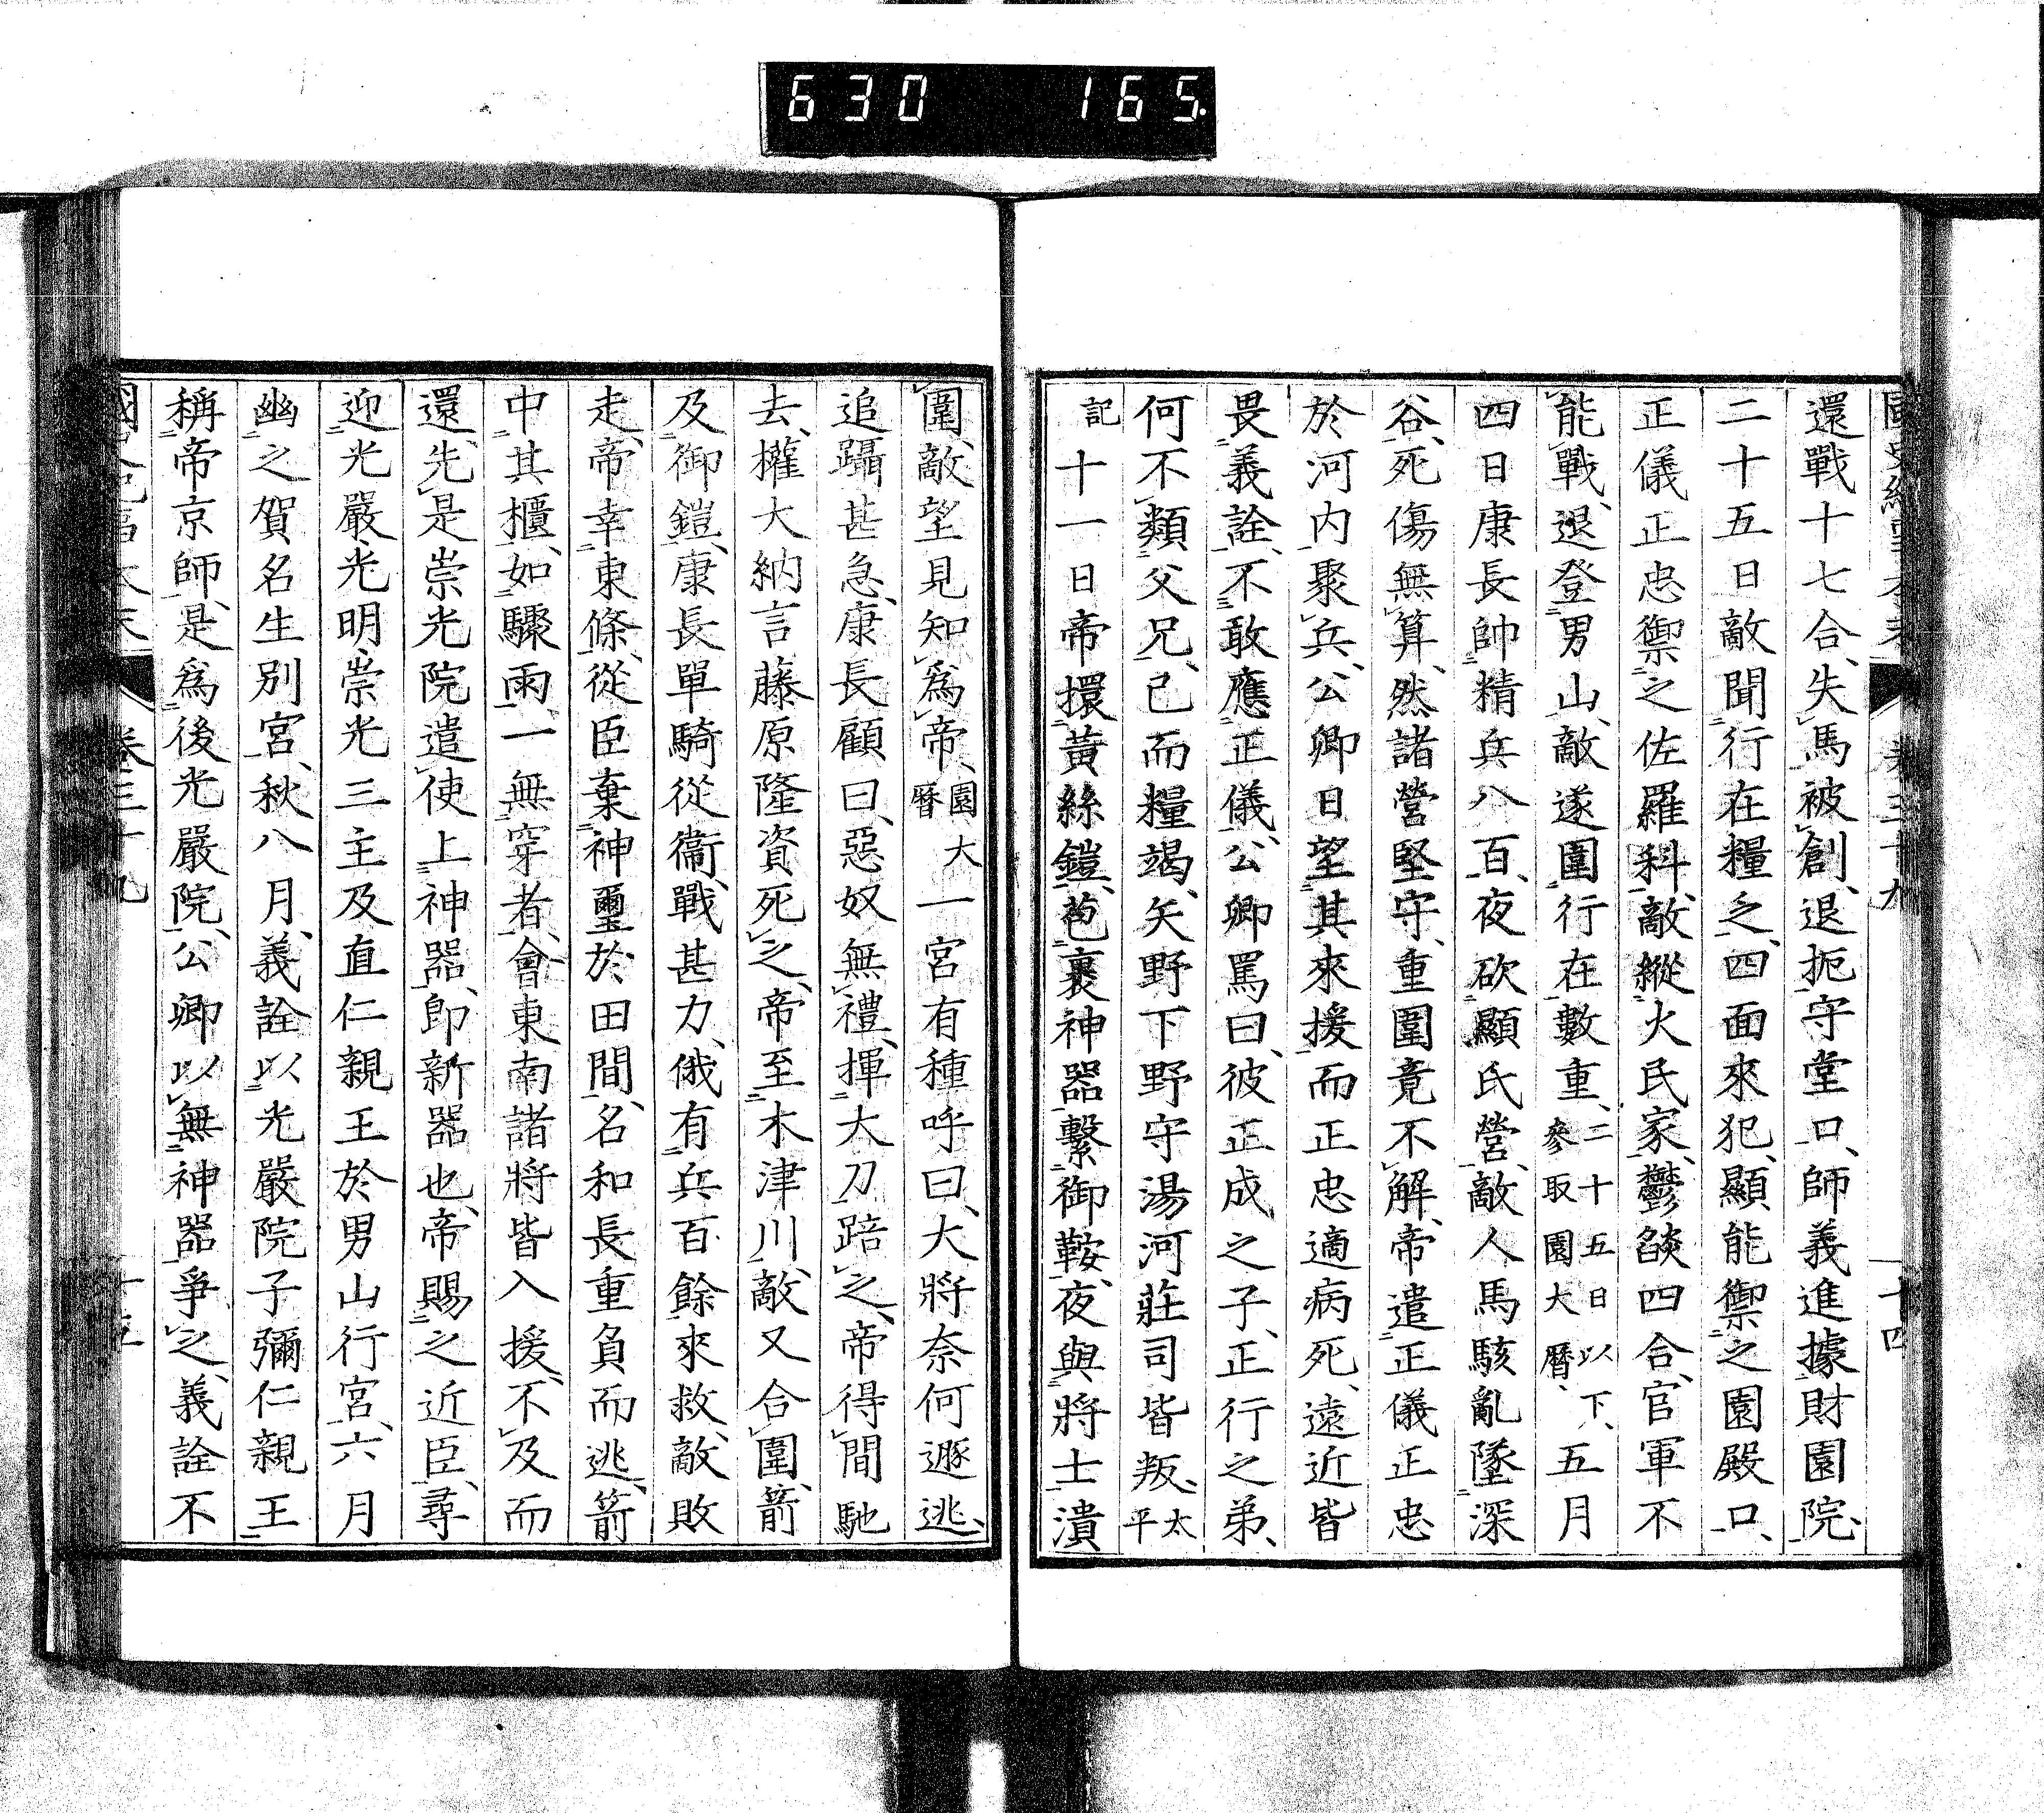 630 165.
還戰十七合、失馬被創、退扼守堂口、師義進據財園院、
二十五日敵聞行在糧乏、四面來犯、顯能禦之園殿口、
正儀正忠禦之佐羅科、敵縱火民家、鬱燄四合、官軍不
能戰、退登男山、敵遂圍行在數重、二十五日以下、參取園大曆、五月
四日康長帥精兵八百、夜砍顯氏營、敵人馬駭亂墜深
谷、死傷無算、然諸營堅守、重圍竟不解、帝遣正儀正忠
於河内聚兵、公卿日望其來援、而正忠適病死、遠近皆
畏義詮、不敢應正儀、公卿罵曰、彼正成之子、正行之弟、
何不類父兄、已而糧竭、矢野下野守湯河莊司皆叛、太平
記十一日帝擐黃絲鎧、苞裹神器繫御鞍、夜與將士潰
圍、敵望見知爲帝、園大曆一宮有種呼曰、大將奈何遯逃、
追躡甚急、康長顧曰、惡奴無禮、揮大刀踣之、帝得間馳
去、權大納言藤原隆資死之、帝至木津川、敵又合圍、箭
及御鎧、康長單騎從衞、戰甚力、俄有兵百餘來救、敵敗
走、帝幸東條、從臣棄神璽於田間、名和長重負而逃、箭
中其櫃、如驟雨、一無穿者、會東南諸將皆入援、不及而
還、先是崇光院遣使上神器、卽新器也、帝賜之近臣、尋
迎光嚴光明崇光三主及直仁親王於男山行宮、六月
幽之賀名生別宮、秋八月、義詮以光嚴院子彌仁親王
稱帝京師、是爲後光嚴院、公卿以無神器爭之、義詮不
卷三十九